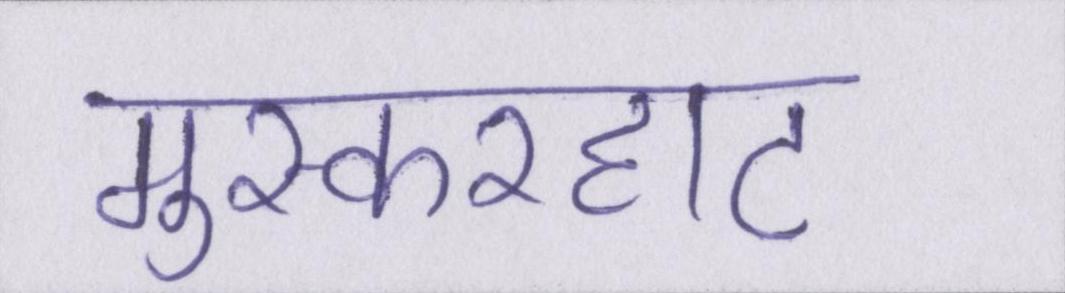 मुस्करहाट